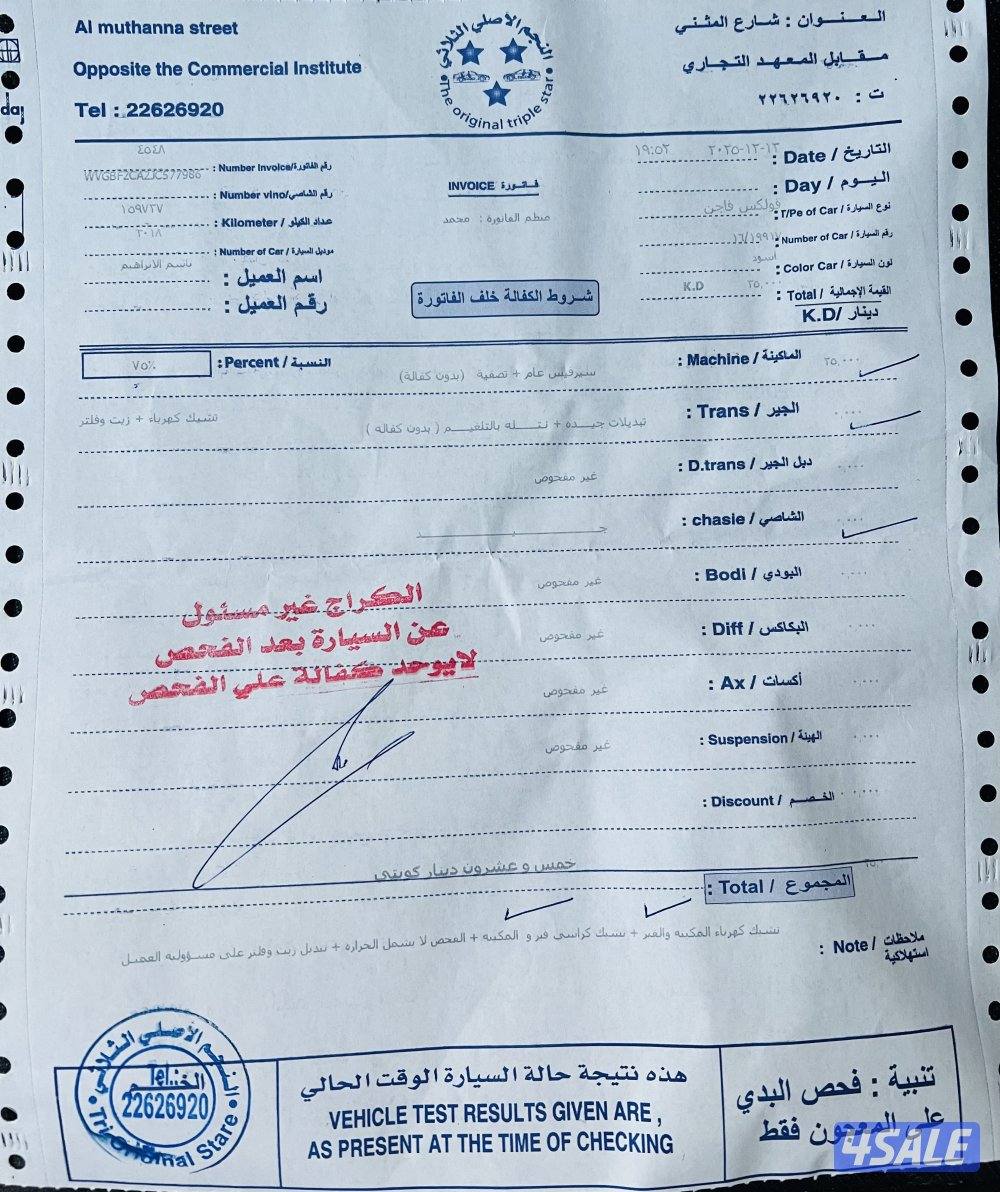 Al muthanna street
Opposite the Commercial Institute
Tel : 22626920
النجم الأصلي الثلاثي
The original triple star
العنوان : شارع المثنى
مقابل المعهد التجاري
ت : ٢٢٦٢٦٩٢٠
٤٥٤٨
رقم الفاتورة/Number Invoice :
WVGBF2CAZJC577986
رقم الشاصي/Number vino :
١٥٩٧٢٧
عداد الكيلو / Kilometer :
٢٠١٨
موديل السيارة / Number of Car :
باسم الابراهيم
اسم العميل :
رقم العميل :
فاتورة INVOICE
منظم الفاتورة : محمد
شروط الكفالة خلف الفاتورة
التاريخ / Date : ٢٠٢٥-١٢-١٢ ١٩:٥٢
اليوم / Day :
نوع السيارة / T/Pe of Car : فولكس فاجن
رقم السيارة / Number of Car :
لون السيارة / Color Car : اسود
القيمة الإجمالية / Total : ٢٥.٠٠٠ K.D
دينار /K.D
النسبة / Percent : ٧٥%
الماكينة / Machine : ٢٥.٠٠٠
سيرفيس عام + تصفية (بدون كفالة)
الجير / Trans : ٠.٠٠٠
تبديلات جيده + نتله بالتلغيم ( بدون كفاله )
تشيك كهرباء + زيت وفلتر
دبل الجير / D.trans : ٠.٠٠٠
غير مفحوص
الشاصي / chasie : ٠.٠٠٠
جيد
البودي / Bodi : ٠.٠٠٠
غير مفحوص
البكاكس / Diff : ٠.٠٠٠
غير مفحوص
أكسات / Ax : ٠.٠٠٠
غير مفحوص
الهيئة / Suspension : ٠.٠٠٠
غير مفحوص
الخصم / Discount : ٠.٠٠٠
الكراج غير مسئول
عن السيارة بعد الفحص
لايوجد كفالة علي الفحص
خمس و عشرون دينار كويتي
المجموع / Total :
ملاحظات استهلاكية / Note :
تشيك كهرباء المكينه والقير + تشيك كراسي قير و المكينه + الفحص لا يشمل الحرارة + تبديل زيت وفلتر على مسؤولية العميل
النجم الأصلي الثلاثي
الختم
Tel.:
22626920
Tri Original Stare
هذه نتيجة حالة السيارة الوقت الحالي
VEHICLE TEST RESULTS GIVEN ARE ,
AS PRESENT AT THE TIME OF CHECKING
تنبية : فحص البدي
على المعجون فقط
4SALE